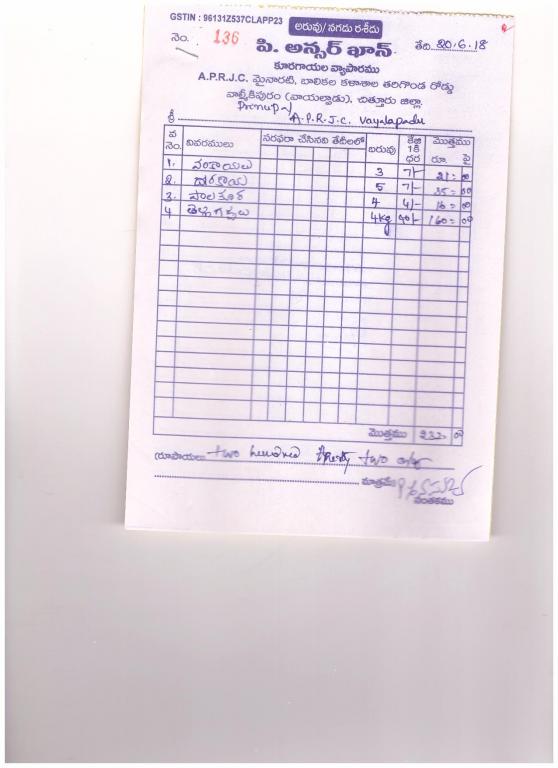 GSTIN : 96131Z537CLAPP23 అరువు/ నగదు రశీదు
నెం. 136 తేది. 20.6.18
పి. అన్సర్ ఖాన్
కూరగాయల వ్యాపారము
A.P.R.J.C. మైనారటి, బాలికల కళాశాల తరిగొండ రోడ్డు
వాల్మీకిపురం (వాయల్పాడు), చిత్తూరు జిల్లా.
శ్రీ A.P.R.J.C. Vayalapadu
వ నెం. వివరములు సరఫరా చేసినవి తేదీలలో బరువు కేజి 1కి ధర మొత్తము రూ. పై
1. వంకాయలు 3 7/- 21=00
2. 5 7/- 35=00
3. పాలకూర 4 4/- 16=00
4 4kg 40/- 160=00
మొత్తము 232=00
రూపాయలు two hundred thirty two only
మాత్రమే
సంతకము